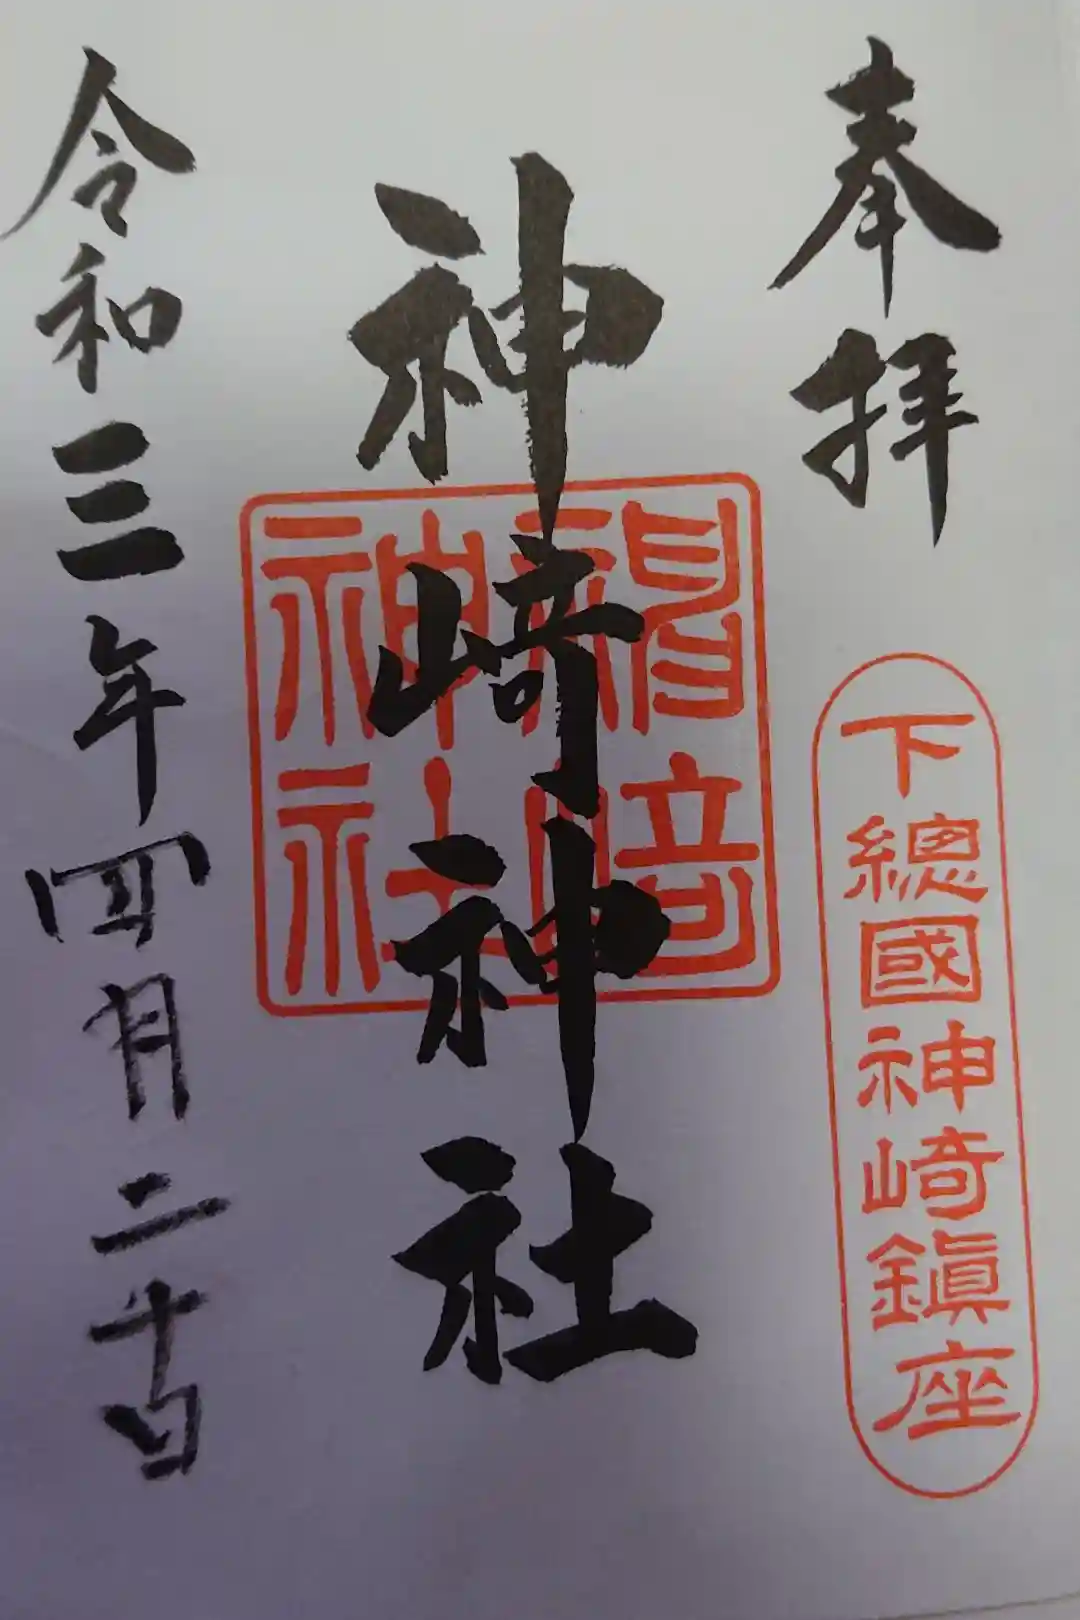 奉拝
下總國神崎鎮座
神崎神社
神崎神社
令和三年四月二十日